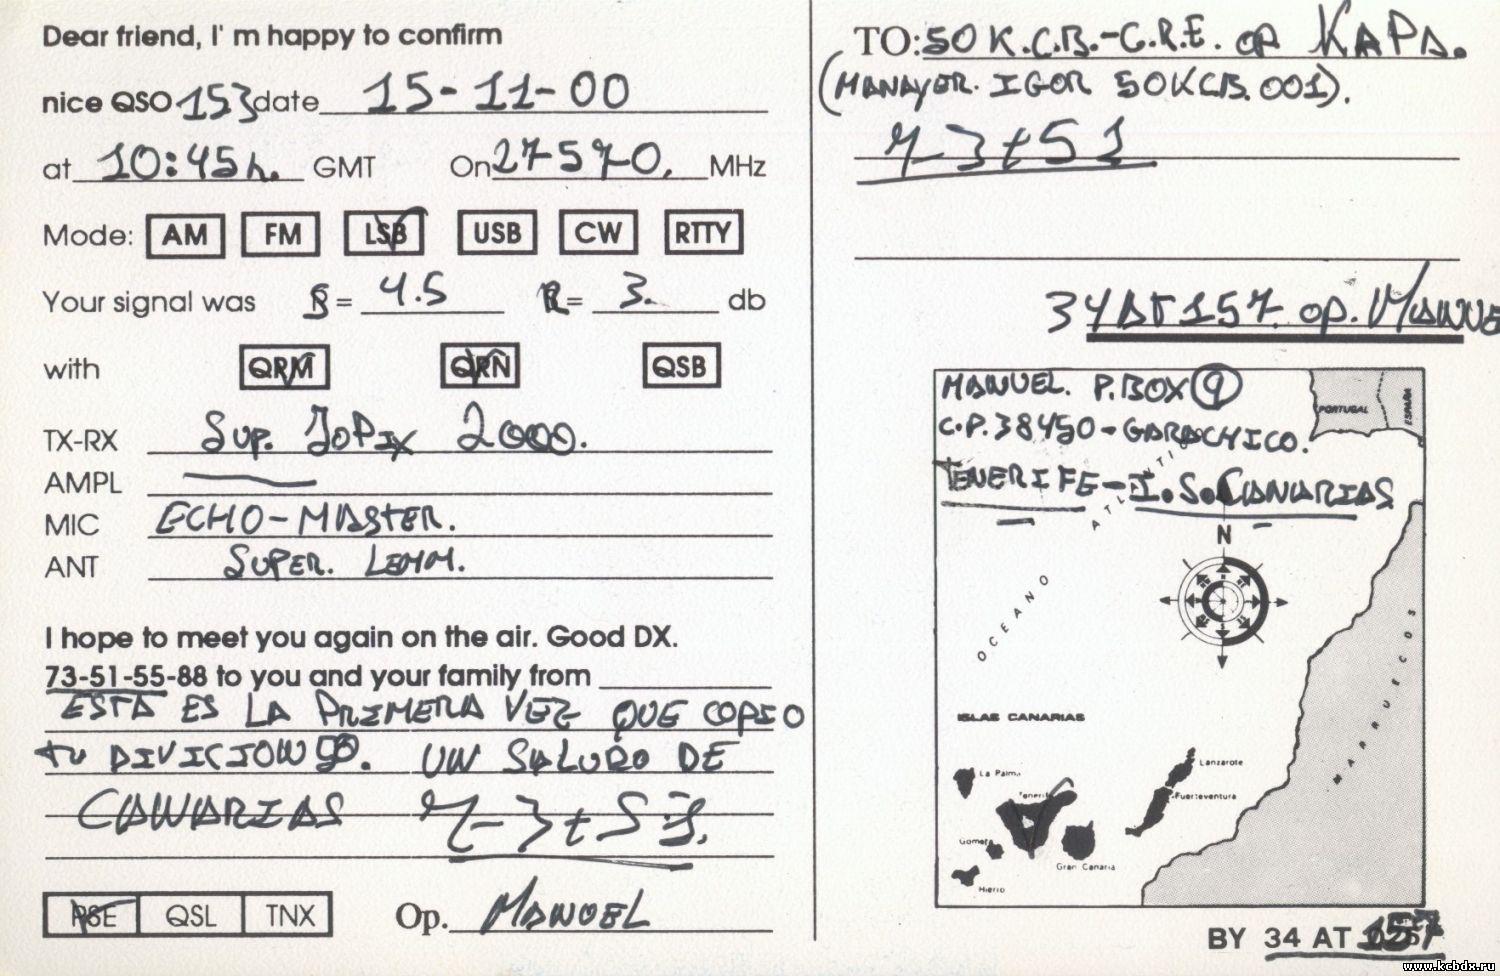 Dear friend, I' m happy to confirm
nice QSO 153 date 15-11-00
at 10:45h. GMT On 27570. MHz
Mode: AM FM LSB USB CW RTTY
Your signal was S = 4.5 R = 3. db
with QRM QRN QSB
TX-RX Sup. JoPix 2000.
AMPL
MIC ECHO-MASTER.
ANT SUPER. LEMM.
I hope to meet you again on the air. Good DX.
73-51-55-88 to you and your family from
ESTA ES LA PRIMERA VEZ QUE COPIO
tu DIVICION 50. UN SALUDO DE
CANARIAS 7-3 t 51.
PSE QSL TNX Op. MANUEL
TO: 50 K.C.B.-C.R.E. op KAPA.
(MANAYER. IGOR 50KCB.001).
7-3 t 51
34AT157. op. MANUE
MANUEL. P.BOX 9
C.P.38450-GARACHICO.
TENERIFE-I.S.CANARIAS
PORTUGAL
ESPAÑA
OCEANO
ATLANTICO
N
MARRUECOS
ISLAS CANARIAS
La Palma
Tenerife
Gomera
Hierro
Gran Canaria
Lanzarote
Fuerteventura
BY 34 AT 157
www.kcbdx.ru